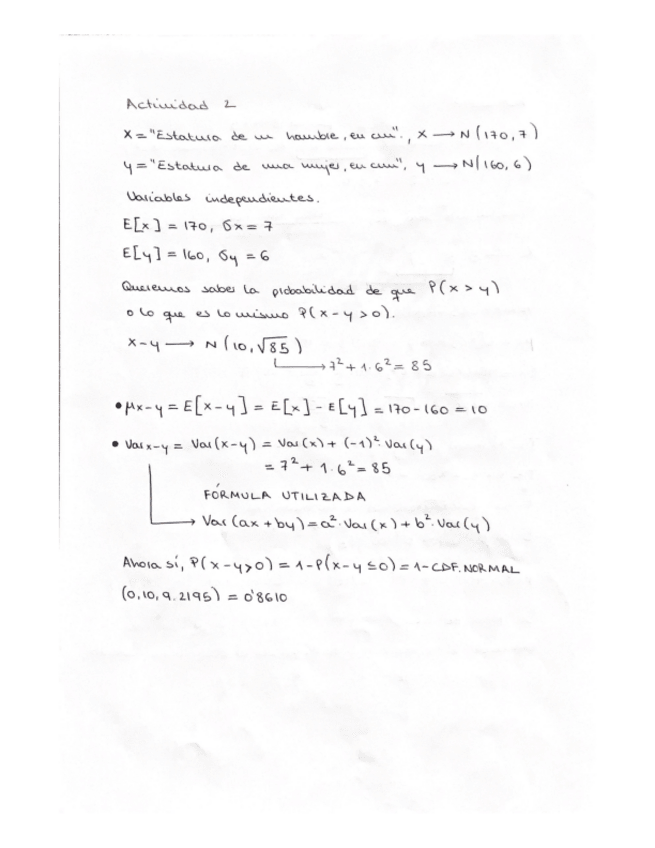 Actividad 2
X = "Estatura de un hombre, en cm"., X → N(170, 7)
y = "Estatura de una mujer, en cm", y → N(160, 6)
Variables independientes.
E[x] = 170, σx = 7
E[y] = 160, σy = 6
Queremos saber la probabilidad de que P(x > y)
o lo que es lo mismo P(x - y > 0).
x-y → N(10, √85)
→ 7² + 1·6² = 85
• μx-y = E[x-y] = E[x] - E[y] = 170 - 160 = 10
• Varx-y = Var(x-y) = Var(x) + (-1)²·Var(y)
= 7² + 1·6² = 85
FÓRMULA UTILIZADA
→ Var(ax + by) = a²·Var(x) + b²·Var(y)
Ahora sí, P(x-y>0) = 1-P(x-y ≤ 0) = 1-CDF.NORMAL
(0,10,9.2195) = 0'8610